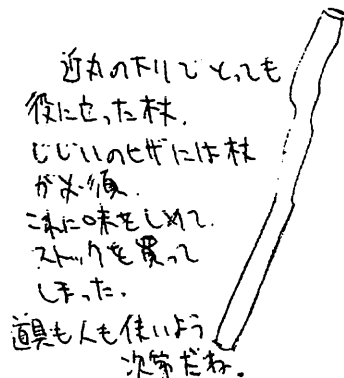 近丸の下りでとっても
役に立った杖.
じじいのヒザには杖
が必須.
これに味をしめて.
ストックを買って
しまった.
道具も人も使いよう
次第だね.